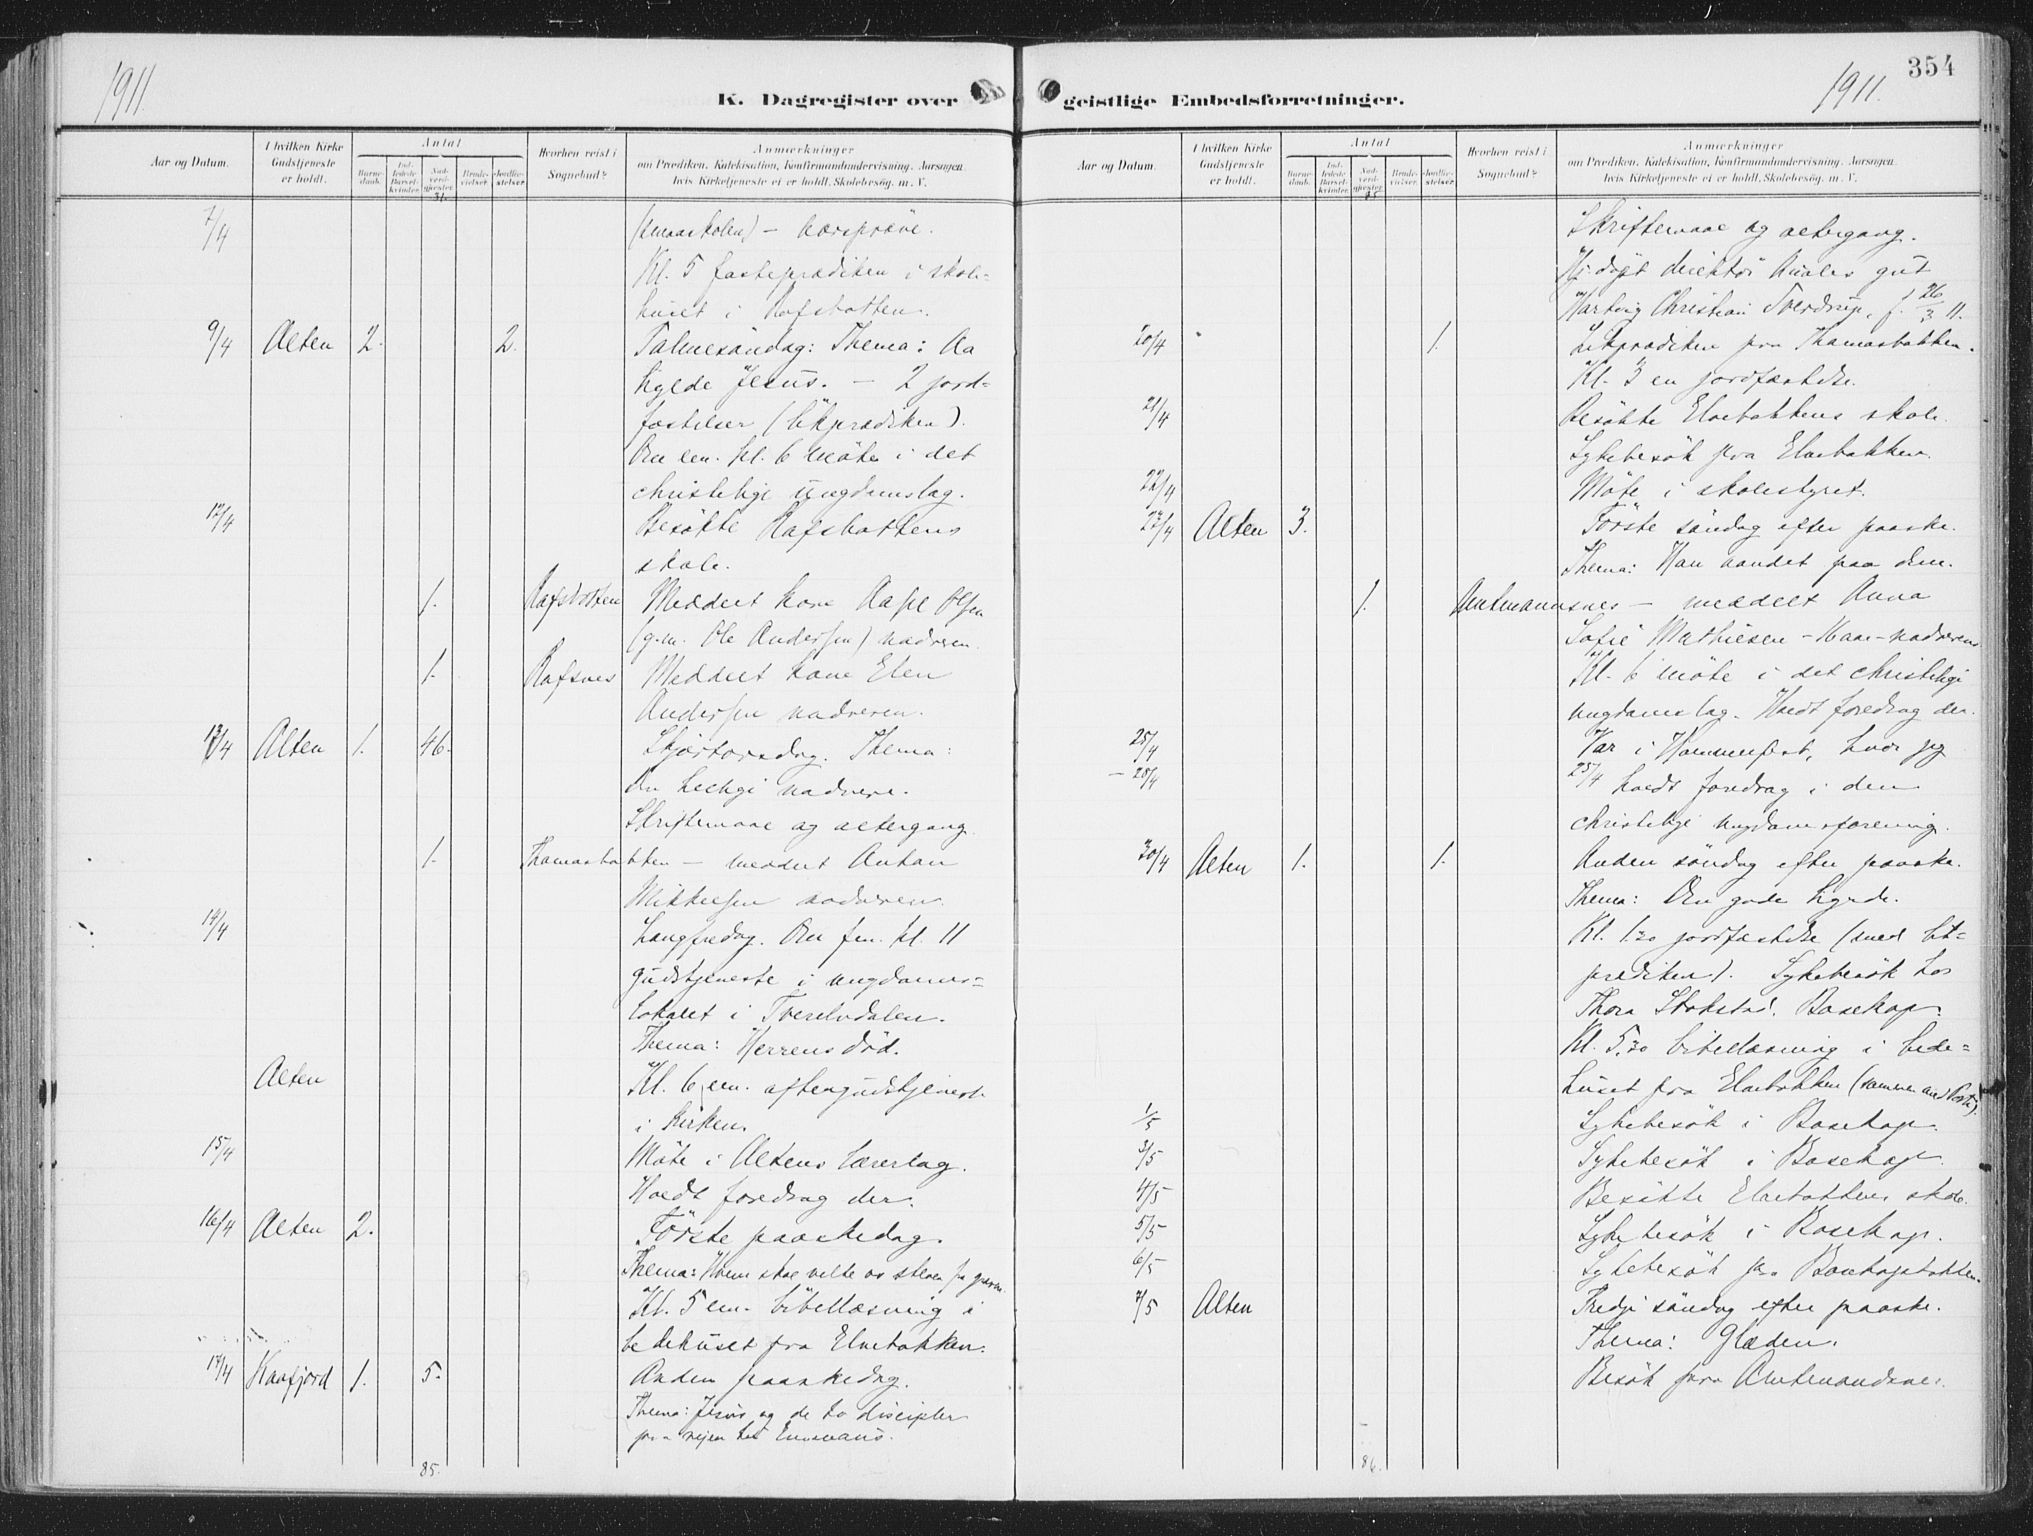 1911.
K. Dagregister over
Aar og Datum.
I hvilken Kirke Gudstjeneste er holdt.
Antal
Barne-daab.
Ind-ledede Barsel-kvinder.
Nad-verd-gjester.
Brude-vielser.
Jordfæ-stelser.
Hvorhen reist i Sognebud?
Anmærkninger
om Prædiken, Katekisation, Konfirmandundervisning, Aarsagen
hvis Kirketjeneste ei er holdt, Skolebesøg, m. V.
31.
7/4 (smaaskolen) — korsprøve.
Kl. 5 fasteprædiken i skole-
huset i Rafsbotten.
9/4 Alten 2. 2. Palmesöndag: Thema: Aa
hylde Jesus. — 2 jord-
fæstelser (likprædiken).
Om em. kl. 6 möte i det
christelige ungdomslag.
12/4 Besökte Rafsbottens
skole.
1. Rafsbotten Meddelt kone
(g.m. Ole Andersen) nadveren.
1. Rafsnes Meddelt kone Elen
Andersen nadveren.
13/4 Alten 1. 46. Skjærtorsdag. Thema:
Den hellige nadvere.
Skriftemaal og altergang.
1. Thomasbakken — meddelt Anton
Mikkelsen nadveren.
14/4 Langfredag. Om fm. kl. 11
gudstjeneste i ungdoms-
lokalet i Tverelvdalen.
Thema: Herrens död.
Alten Kl. 6 em. aftengudstjeneste
i kirken.
15/4 Möte i Altens lærerlag.
Holdt foredrag der.
16/4 Alten 2. Förste paaskedag.
Thema: Hvem skal velte os stenen fra graven
Kl. 5 em. bibellæsning i
bedehuset paa Elvebakken.
17/4 Kaafjord 1. 5. Anden paaskedag.
Thema: Jesus og de to disciple
paa veien til Emmaus.
85.
354
1911.
geistlige Embedsforretninger.
Aar og Datum.
I hvilken Kirke Gudstjeneste er holdt.
Antal
Barne-daab.
Ind-ledede Barsel-kvinder.
Nad-verd-gjester.
Brude-vielser.
Jordfæ-stelser.
Hvorhen reist i Sognebud?
Anmærkninger
om Prædiken, Katekisation, Konfirmandundervisning, Aarsagen
hvis Kirketjeneste ei er holdt, Skolebesøg, m. V.
85
Skriftemaal og altergang.
Hj. döpt direktör gut
Hartvig Christian Sverdrup, f. 26/3 11.
20/4 1. Likprædiken paa Thomasbakken.
Kl. 3 en jordfæstelse.
21/4 Besökte Elvebakkens skole.
Sykebesök paa Elvebakken.
22/4 Möte i skolestyret.
23/4 Alten 3. Förste söndag efter paaske.
Thema: Han aandet paa dem.
1. Amtmannsnes — meddelt Anna
Sofie Mathiesen nadveren
Kl. 6 möte i det christelige
ungdomslag. Holdt foredrag der.
25/4 Var i Hammerfest, hvor jeg
— 28/4 25/4 holdt foredrag i den
christelige ungdomsforening.
30/4 Alten 1. 1. Anden söndag efter paaske.
Thema: Den gode hyrde.
Kl. 1.30 jordfæstelse (med lik-
prediken). Sykebesök hos
Thora Stokstad, Bosekop.
Kl. 5.30 bibellæsning i bede-
huset paa Elvebakken (sammen med
1/5 Sykebesök i Bosekop.
3/5 Sykebesök i Bosekop.
4/5 Besökte Elvebakkens skole.
5/5 Sykebesök i Bosekop.
6/5 Sykebesök paa Bosekopbakken.
7/5 Alten Tredje söndag efter paaske.
Thema: Glæden.
Besök paa Amtmandsnes.
86.